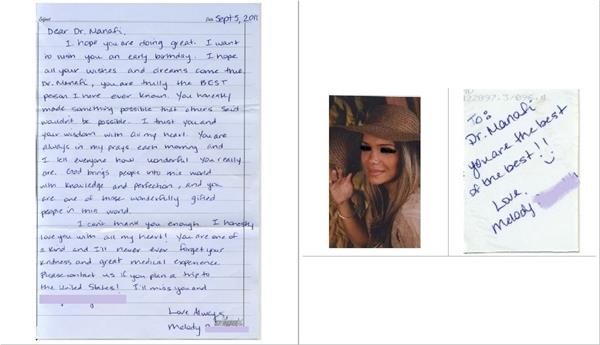 Date Sept 5, 2011
Dear Dr. Manafi,
I hope you are doing great. I want
to wish you an early birthday. I hope
all your wishes and dreams come true.
Dr. Manafi, you are trully the BEST
person I have ever known. You honestly
made something possible that others said
wouldn't be possible. I trust you and
your wisdom with all my heart. You are
always in my prays each morning and
I tell everyone how wonderful you really
are. God brings people into this world
with knowledge and perfection, and you
are one of those wonderfully gifted
people in this world.
I can't thank you enough. I honestly
love you with all my heart! You are one of
a kind and I'll never ever forget your
kindness and great medical experience.
Please contact us if you plan a trip to
the United States! I'll miss you and
Love Always,
Melody
To:
Dr. Manafi
you are the best
of the best!!
Love,
Melody